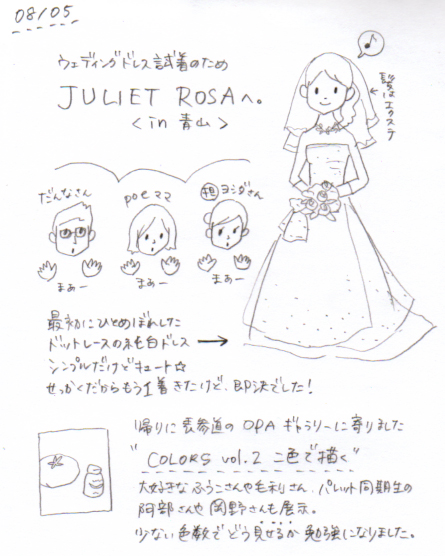 08/05
ウェディングドレス試着のため
JULIET ROSAへ。
<in 青山>
♪
髪はエクステ
だんなさん
poeママ
担 ヨシダさん
まぁー
まぁー
まぁー
最初にひとめぼれした
ドットレースの純白ドレス
シンプルだけどキュート☆
せっかくだからもう1着きたけど、即決でした!
帰りに表参道のOPAギャラリーに寄りました
"COLORS vol.2 二色で描く"
大好きなふうこさんや毛利さん、パレット同期生の
阿部さんや岡野さんも展示。
少ない色数でどう見せるか勉強になりました。